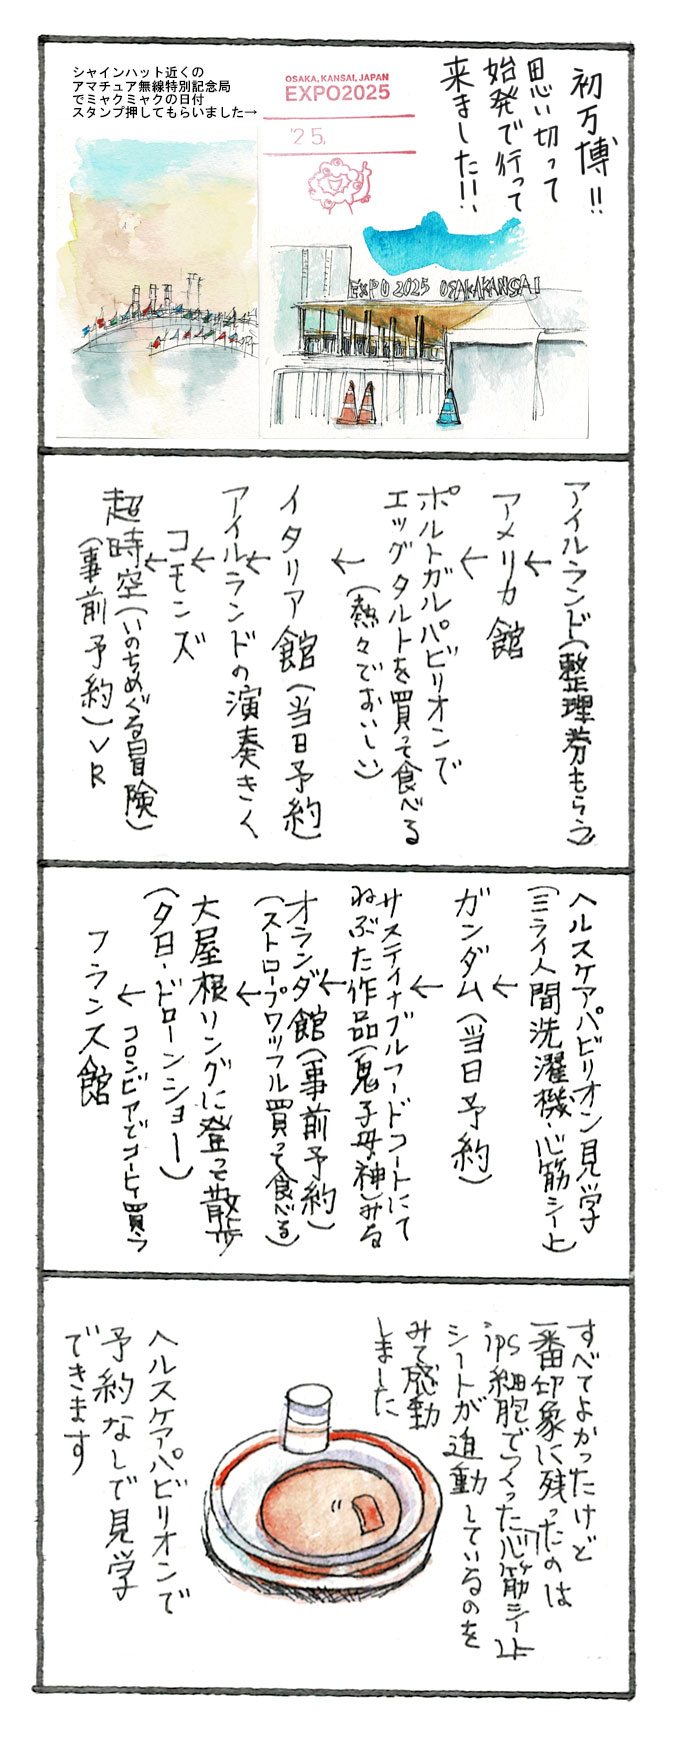 初万博!!
思い切って
始発で行って
来ました!!
シャインハット近くの
アマチュア無線特別記念局
でミャクミャクの日付
スタンプ押してもらいました→
OSAKA, KANSAI, JAPAN
EXPO2025
'25.
EXPO 2025 OSAKAKANSAI
アイルランド(整理券もらう)
←
アメリカ館
←
ポルトガルパビリオンで
エッグタルトを買って食べる
(熱々でおいしい)
←
イタリア館(当日予約)
←
アイルランドの演奏きく
←
コモンズ
←
超時空(いのちめぐる冒険)
(事前予約)VR
ヘルスケアパビリオン見学
(ミライ人間洗濯機・心筋シート)
←
ガンダム(当日予約)
←
サスティナブルフードコートにて
ねぶた作品(鬼子母神)みる
←
オランダ館(事前予約)
(ストロープワッフル買って食べる)
←
大屋根リングに登って散歩
(夕日・ドローンショー)
←
コロンビアでコーヒー買う
フランス館
すべてよかったけど
一番印象に残ったのは
ips細胞でつくった心筋シート
シートが迫動しているのを
みて感動
しました
ヘルスケアパビリオンで
予約なしで見学
できます